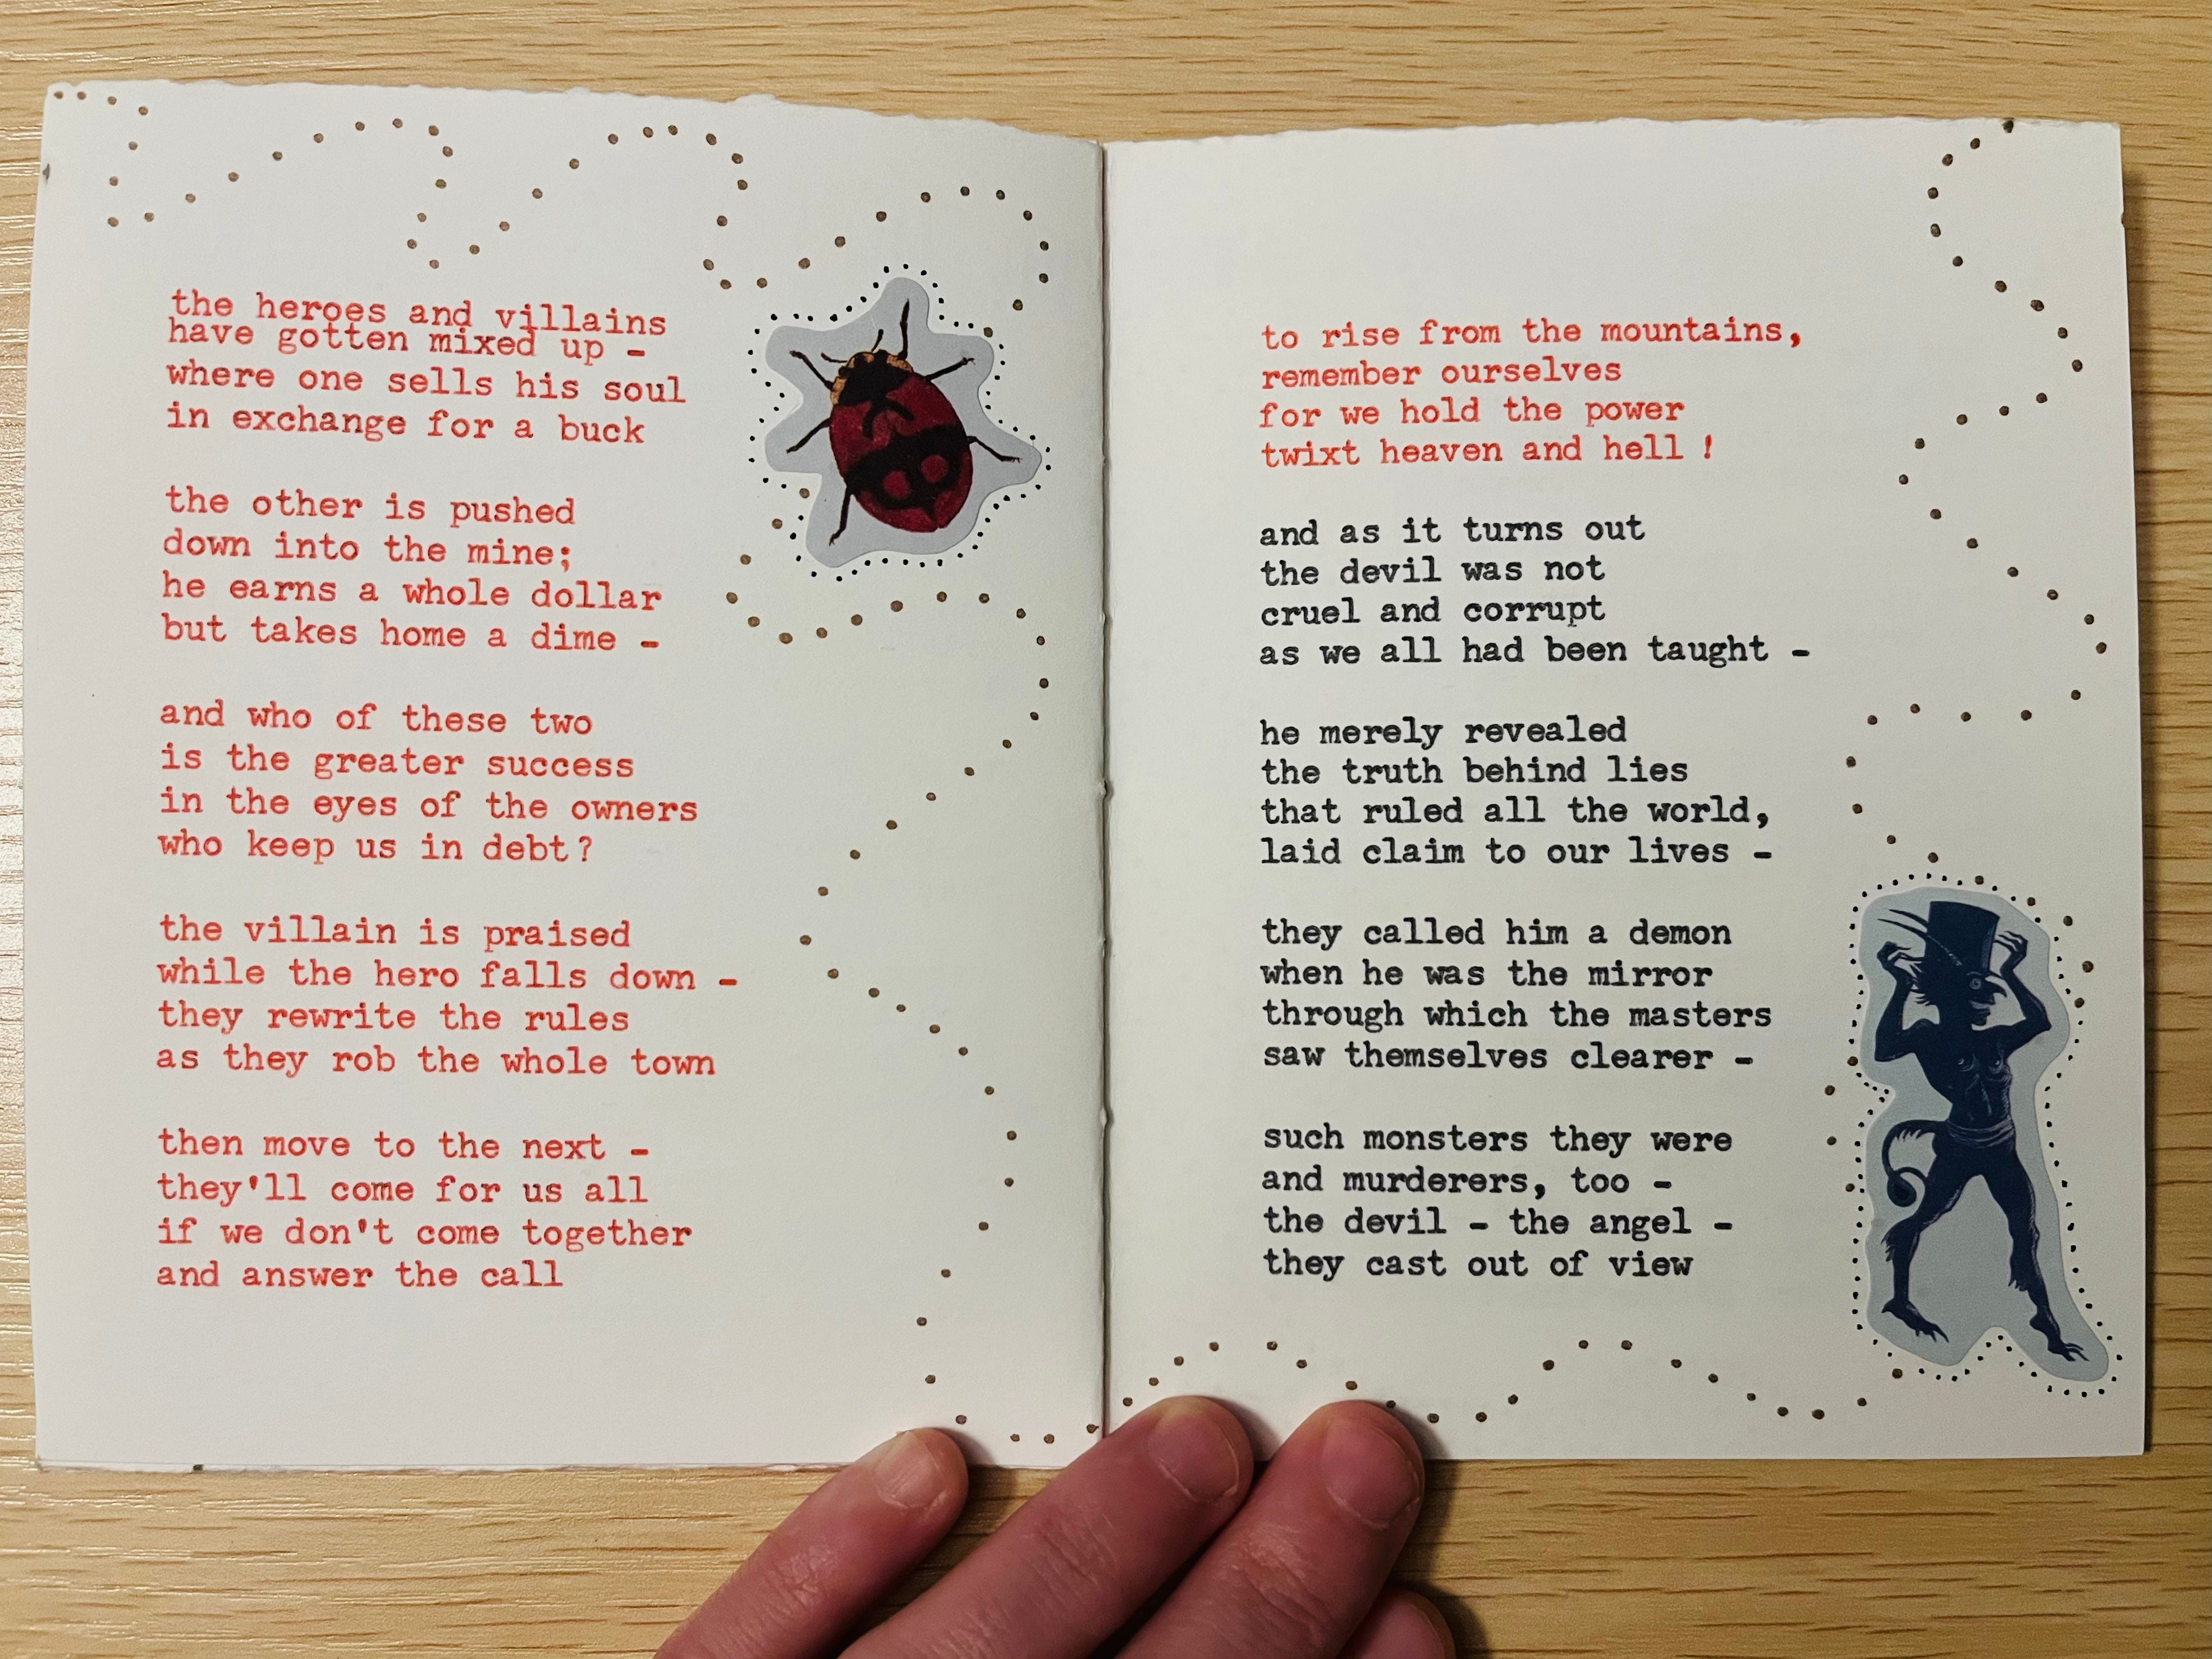 the heroes and villains
have gotten mixed up -
where one sells his soul
in exchange for a buck
the other is pushed
down into the mine;
he earns a whole dollar
but takes home a dime -
and who of these two
is the greater success
in the eyes of the owners
who keep us in debt?
the villain is praised
while the hero falls down -
they rewrite the rules
as they rob the whole town
then move to the next -
they'll come for us all
if we don't come together
and answer the call
to rise from the mountains,
remember ourselves
for we hold the power
twixt heaven and hell !
and as it turns out
the devil was not
cruel and corrupt
as we all had been taught -
he merely revealed
the truth behind lies
that ruled all the world,
laid claim to our lives -
they called him a demon
when he was the mirror
through which the masters
saw themselves clearer -
such monsters they were
and murderers, too -
the devil - the angel -
they cast out of view